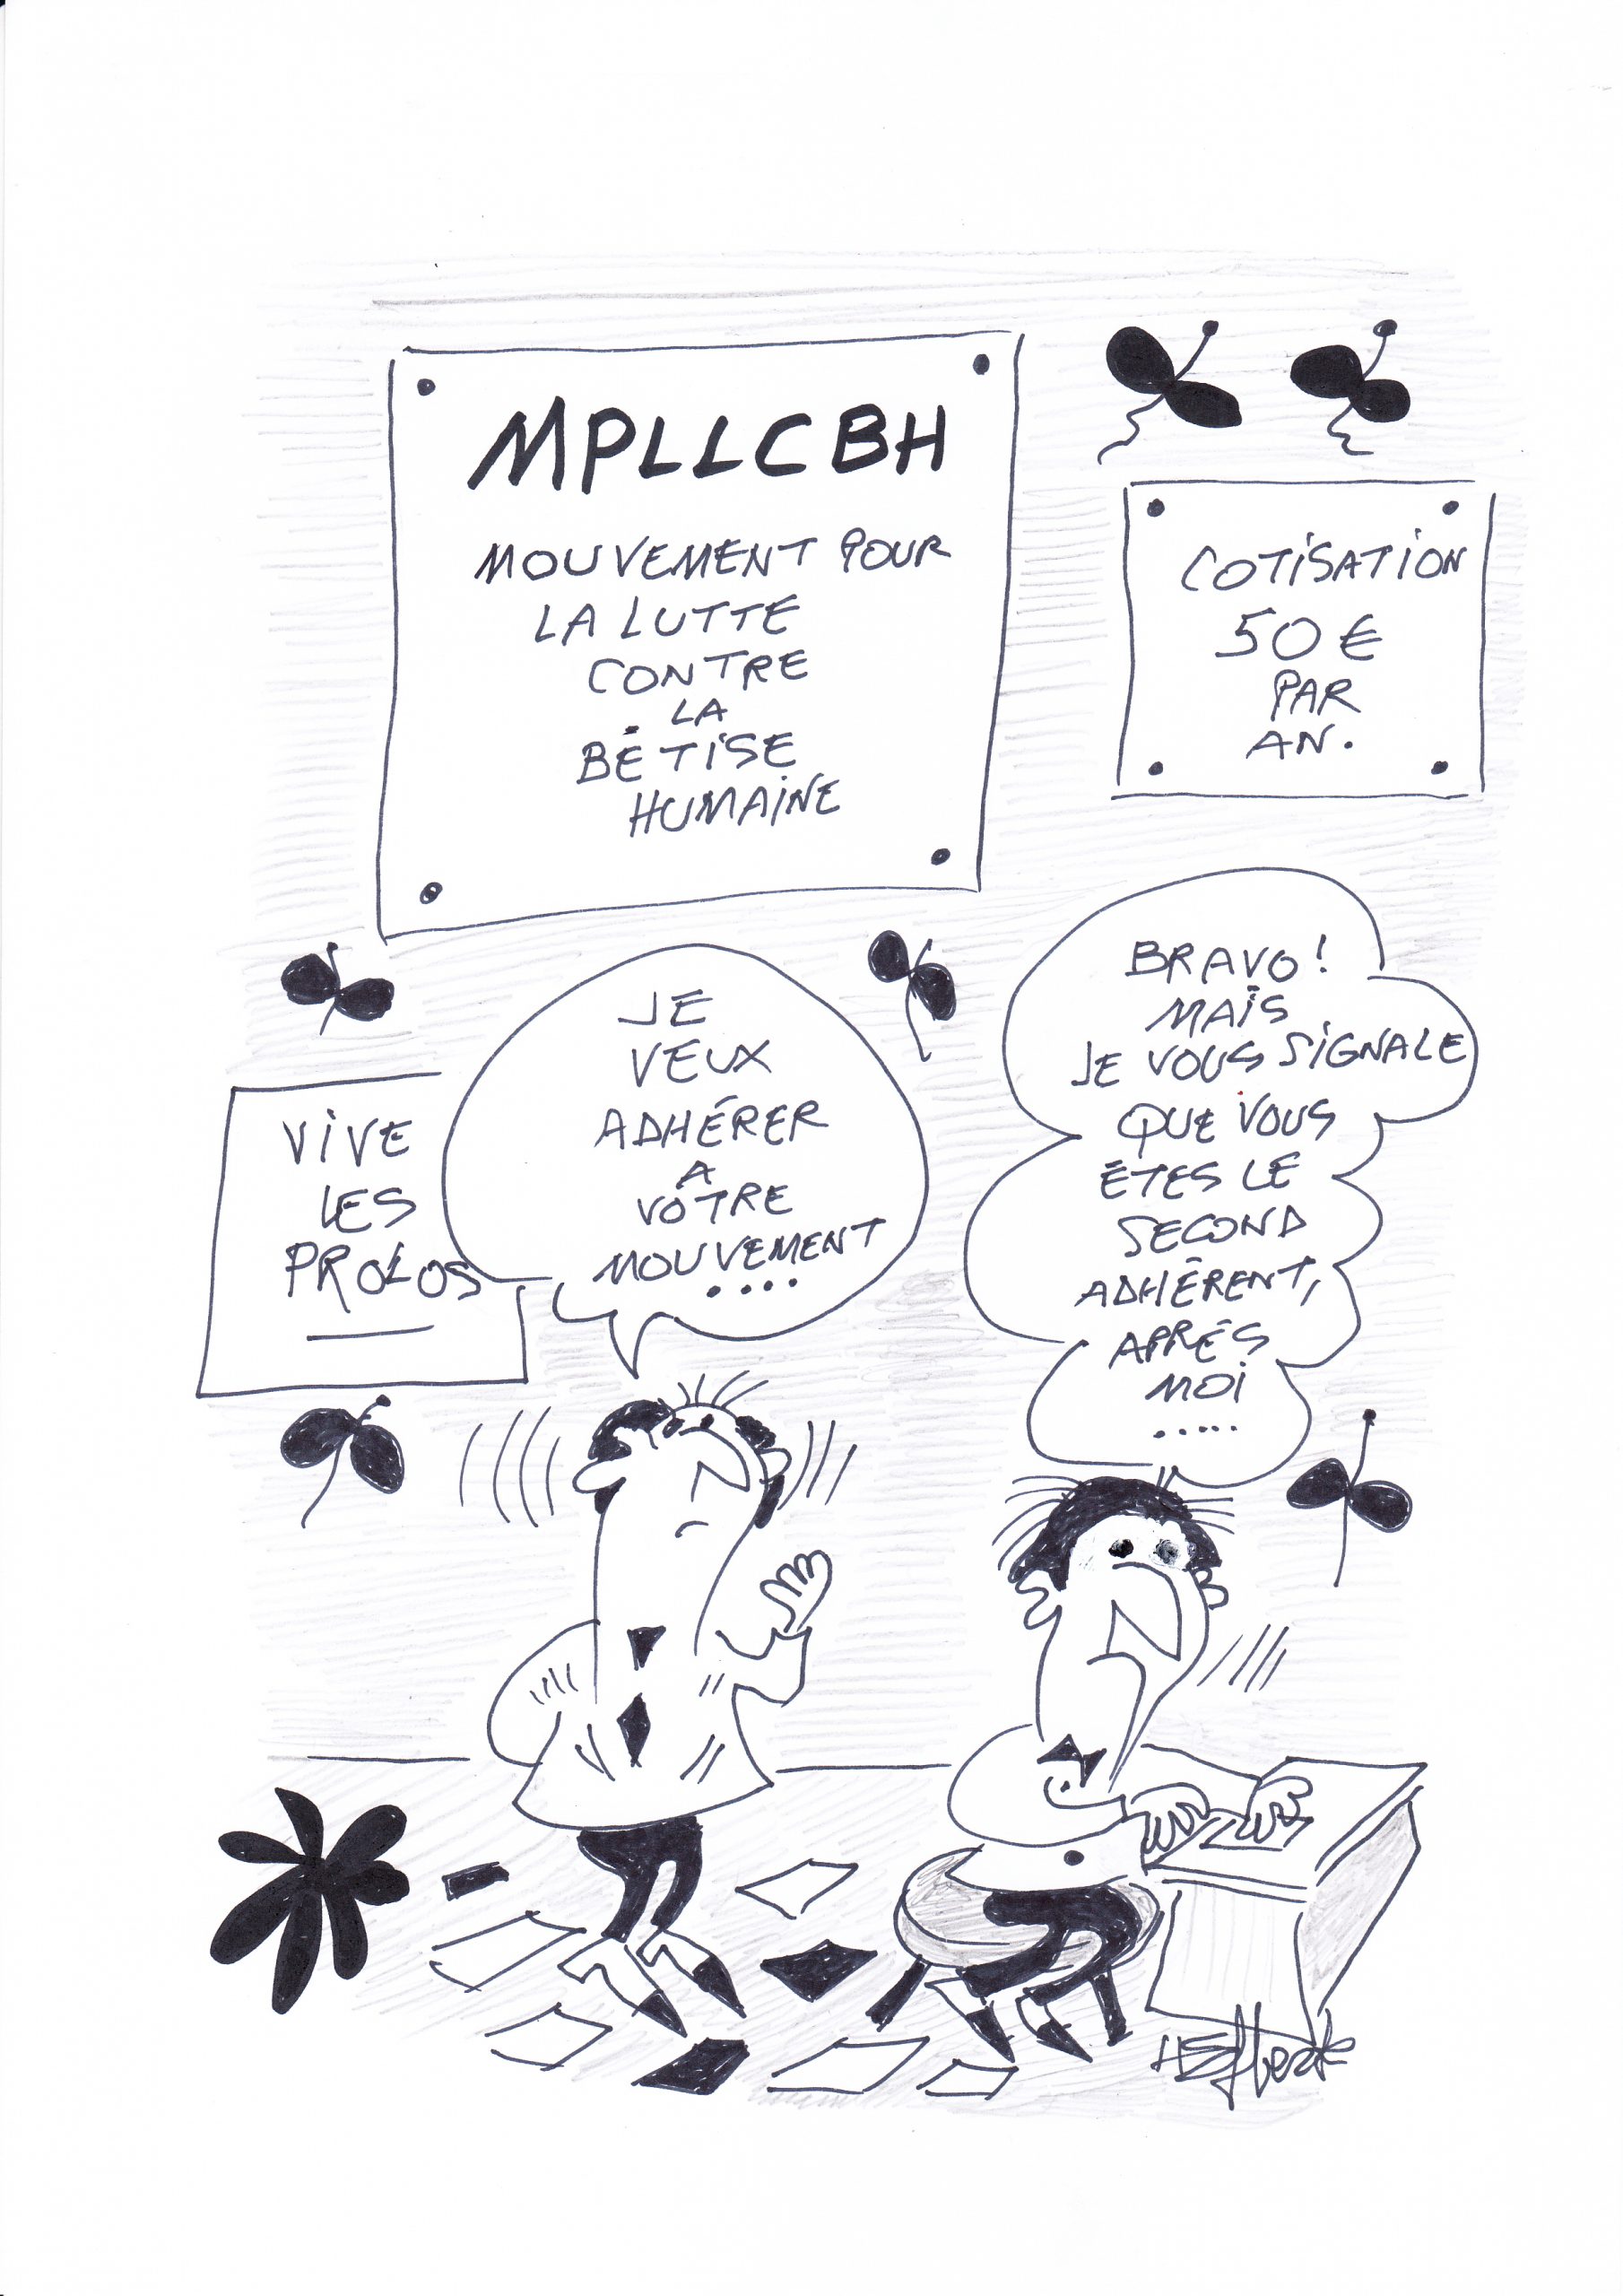 MPLLCBH
MOUVEMENT POUR
LA LUTTE
CONTRE
LA
BÊTISE
HUMAINE
COTISATION
50 €
PAR
AN.
VIVE
LES
PROLOS
JE
VEUX
ADHÉRER
A
VOTRE
MOUVEMENT
....
BRAVO!
MAIS
JE VOUS SIGNALE
QUE VOUS
ÊTES LE
SECOND
ADHÉRENT,
APRÈS
MOI
.....